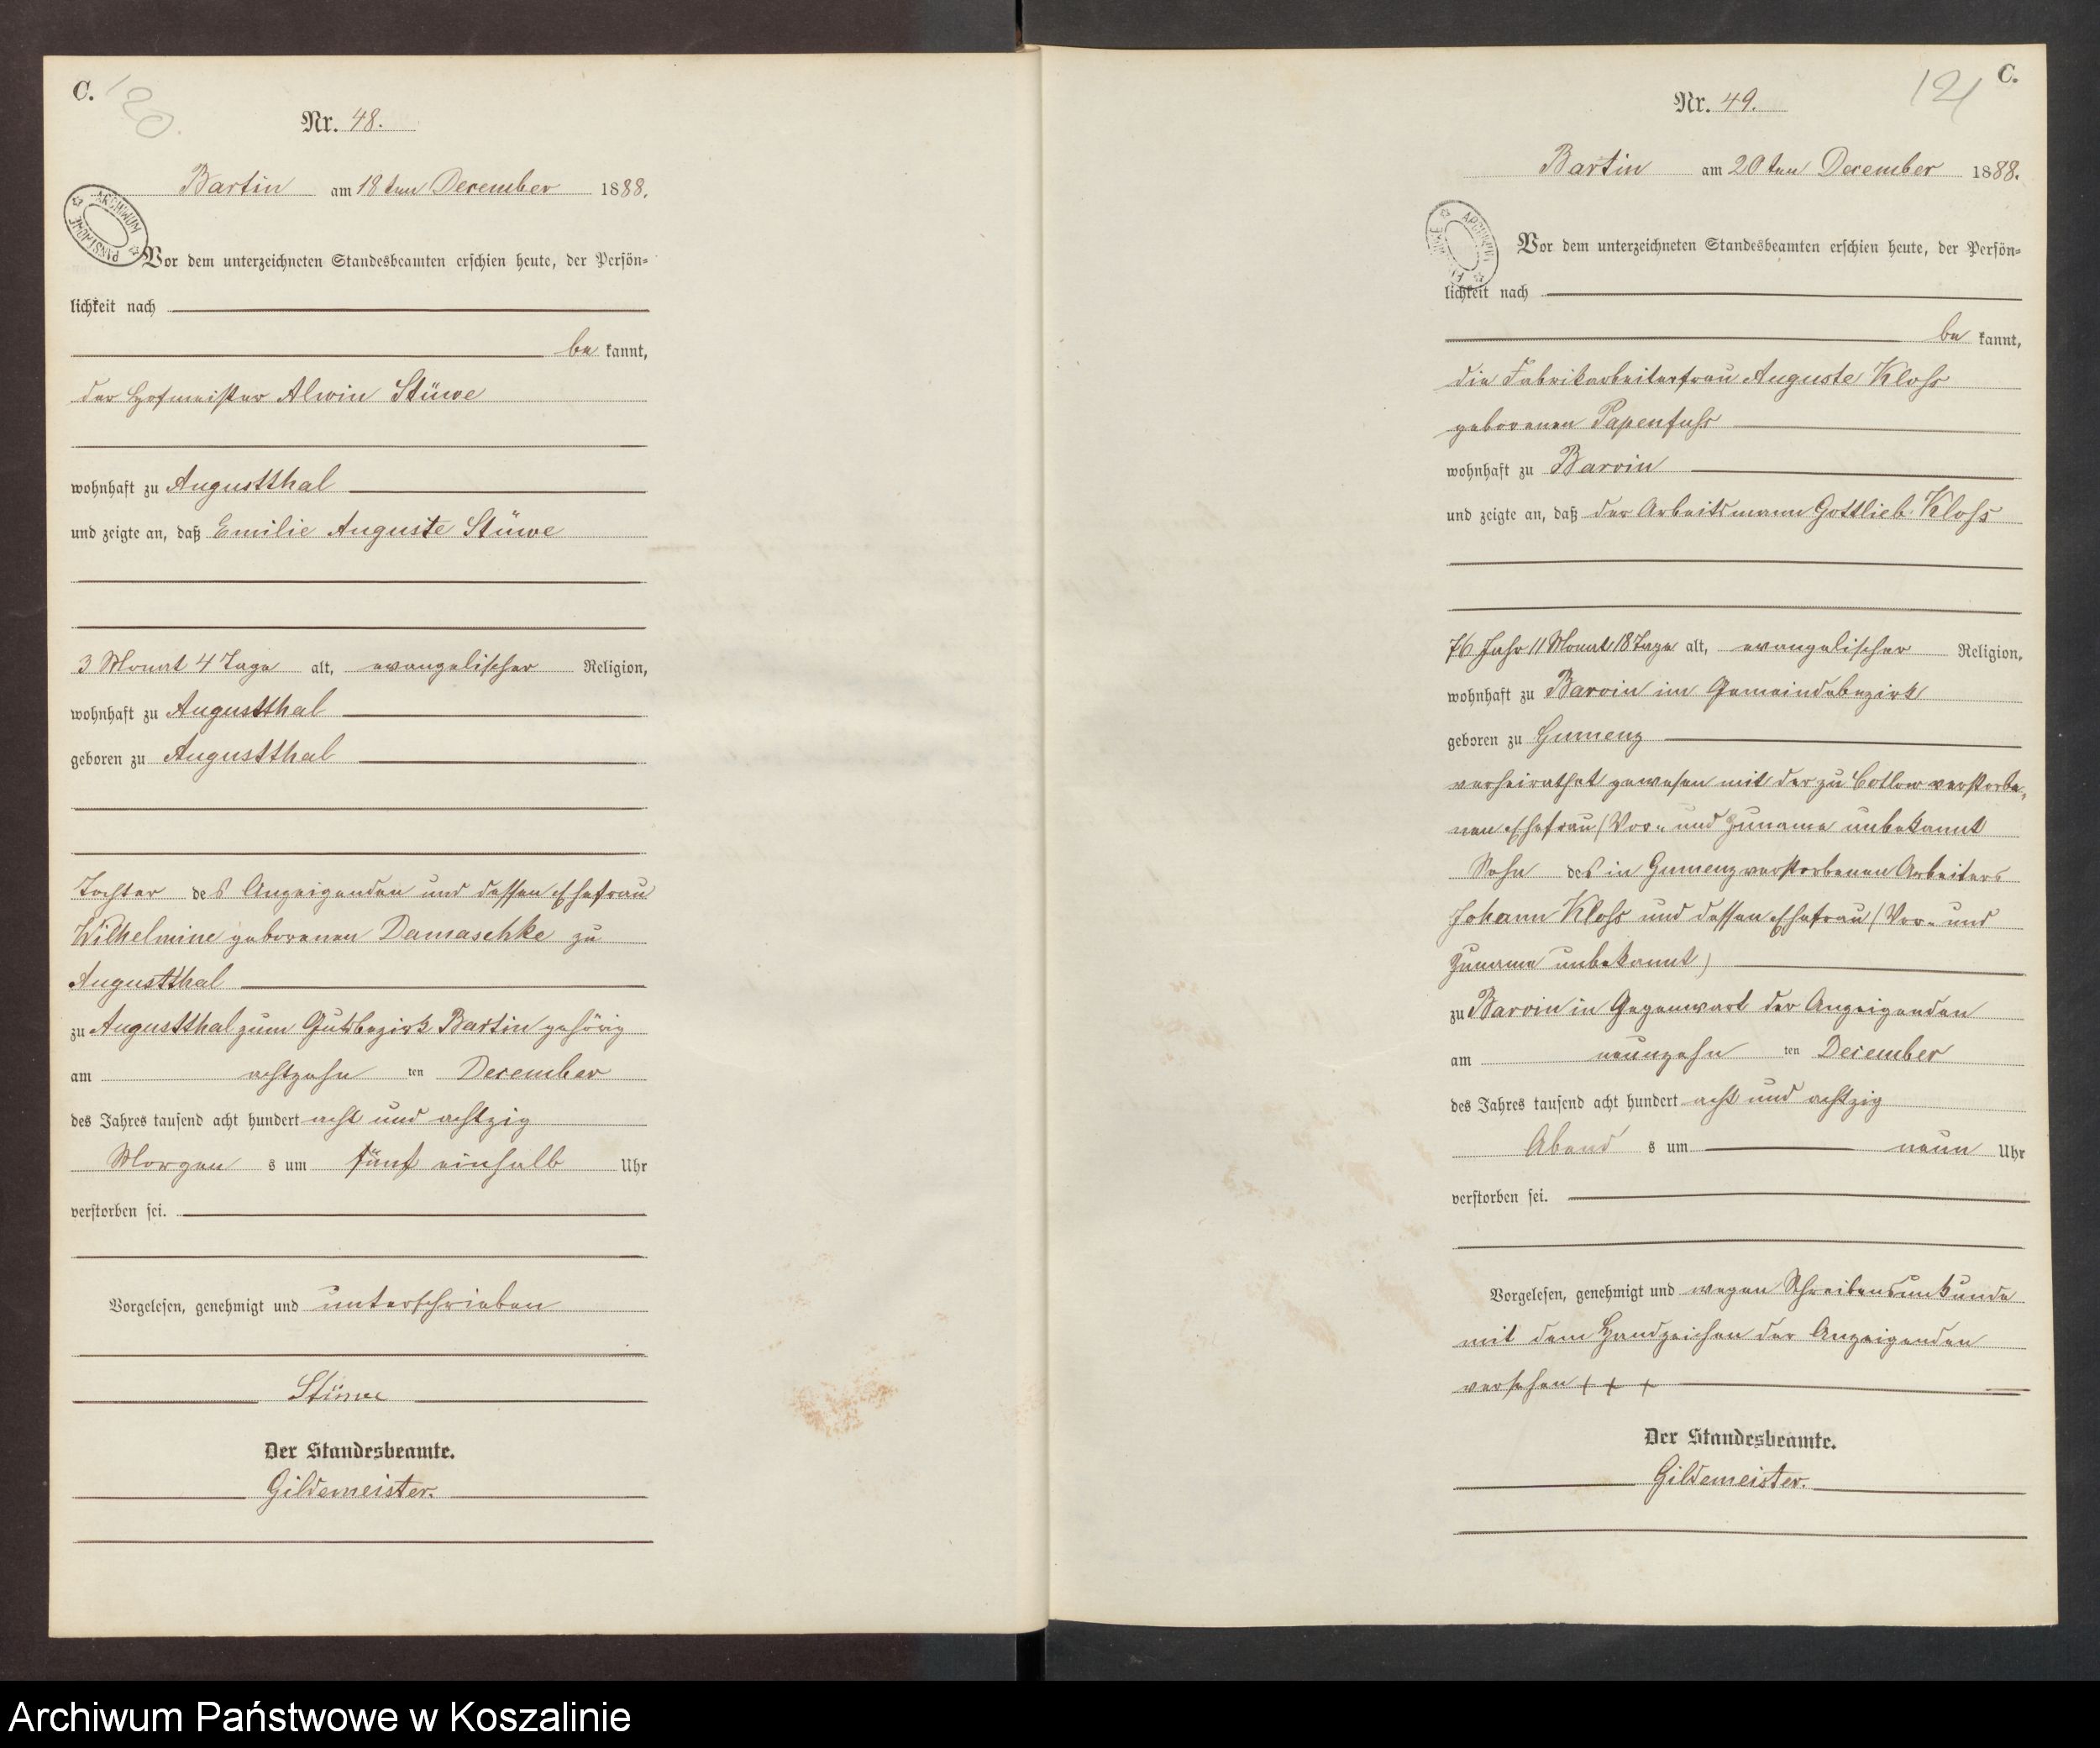 C.
120.
Nr. 48.
Bartin am 18ten December 1888.
ARCHIWUM PAŃSTWOWE
Vor dem unterzeichneten Standesbeamten erschien heute, der Persön-
lichkeit nach
be kannt,
der Hofmeister Alwin Stüwe
wohnhaft zu Augustthal
und zeigte an, daß Emilie Auguste Stüwe
3 Monat 4 Tage alt, evangelischer Religion,
wohnhaft zu Augustthal
geboren zu Augustthal
Tochter des Anzeigenden und dessen Ehefrau
Wilhelmine geborenen Damaschke zu
Augustthal
zu Augustthal zum Gutsbezirk Bartin gehörig
am achtzehn ten December
des Jahres tausend acht hundert acht und achtzig
Morgen s um fünf einhalb Uhr
verstorben sei.
Vorgelesen, genehmigt und unterschrieben
Stüwe
Der Standesbeamte.
Gildemeister.
C.
121
Nr. 49.
Bartin am 20ten December 1888.
Vor dem unterzeichneten Standesbeamten erschien heute, der Persön-
lichkeit nach
be kannt,
die Fabrikarbeiterfrau Auguste Kloss
geborenen Papenfuss
wohnhaft zu Barvin
und zeigte an, daß der Arbeitsmann Gottlieb Kloss
76 Jahr 11 Monat 18 Tage alt, evangelischer Religion,
wohnhaft zu Barvin im Gemeindebezirk
geboren zu Gumenz
verheirathet gewesen mit der zu Cottow verstorbe-
nen Ehefrau (Vor- und Zuname unbekannt
Sohn des in Gumenz verstorbenen Arbeiters
Johann Kloss und dessen Ehefrau (Vor- und
Zuname unbekannt)
zu Barvin in Gegenwart der Anzeigenden
am neunzehn ten December
des Jahres tausend acht hundert acht und achtzig
Abend s um neun Uhr
verstorben sei.
Vorgelesen, genehmigt und wegen Schreibensunkunde
mit dem Handzeichen der Anzeigenden
versehen + + +
Der Standesbeamte.
Gildemeister.
Archiwum Państwowe w Koszalinie